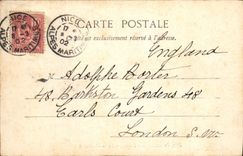 NICE
ALPES MARITIMES
NICE
ALPES MARITIMES
CARTE POSTALE
exclusivement réservé à l'adresse.
England
Adolphe Bortés
48. Barkston Gardens 48
Earls Court
London S.W.